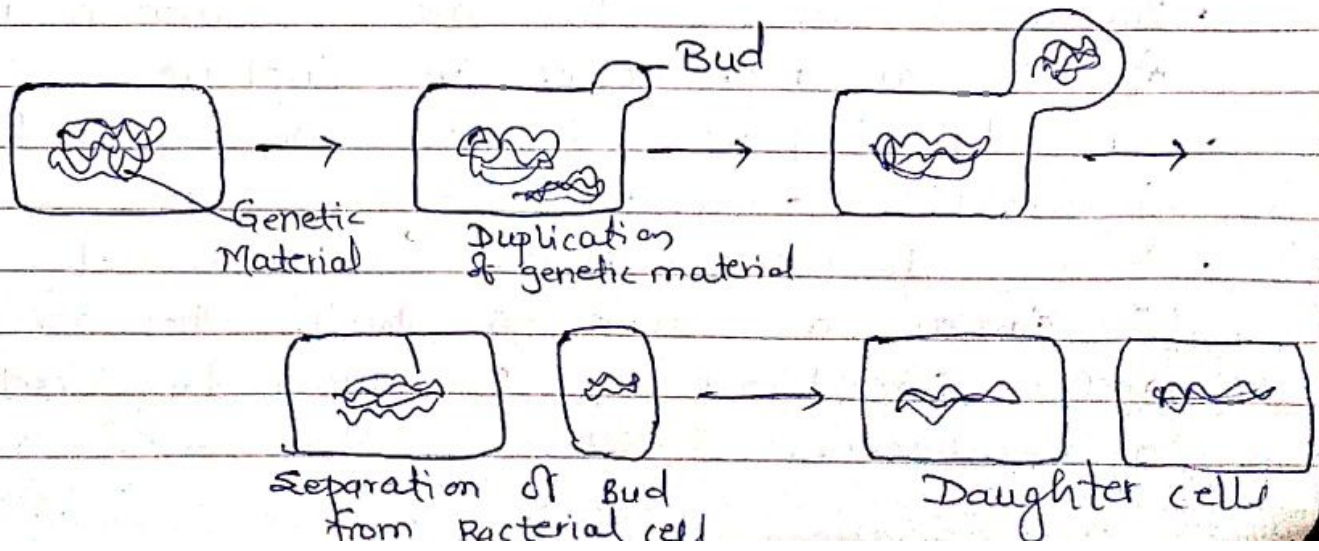 Bud
Genetic
Material
Duplication
of genetic material
Separation of Bud
from Bacterial cell
Daughter cells